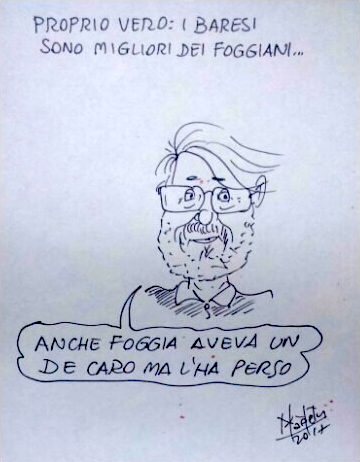 PROPRIO VERO: I BARESI
SONO MIGLIORI DEI FOGGIANI...
ANCHE FOGGIA AVEVA UN
DE CARO MA L'HA PERSO
2017